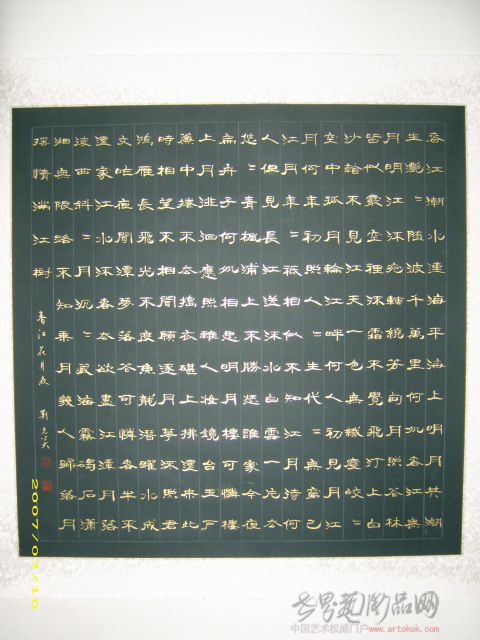 春江潮水連海平海上明月共潮
生灧〻隨波千萬里何処春江無
月明江流宛轉繞芳甸月照花林
皆似霰空裡流霜不覺飛汀上白
沙看不見江天一色無纖塵皎〻
空中孤月輪江畔何人初見月江
月何年初照人人生代〻無窮已
江月年〻祗相似不知江月待何
人但見長江送流水白雲一片去
悠〻青楓浦上不勝愁誰家今夜
扁舟子何処相思明月樓可憐樓
上月徘徊應照離人妝鏡台玉戶
簾中捲不去搗衣砧上拂還來此
時相望不相聞願逐月華流照君
鴻雁長飛光不度魚龍潛躍水成
文昨夜閒潭夢落花可憐春半不
還家江水流春去欲盡江潭月落
復西斜〻月沉〻藏海霧碣石瀟
湘無限路不知乘月幾人歸落月
搖情滿江樹
春江花月夜
2007/07/10
世界艺术品网
中国艺术权威门户 www.artokok.com